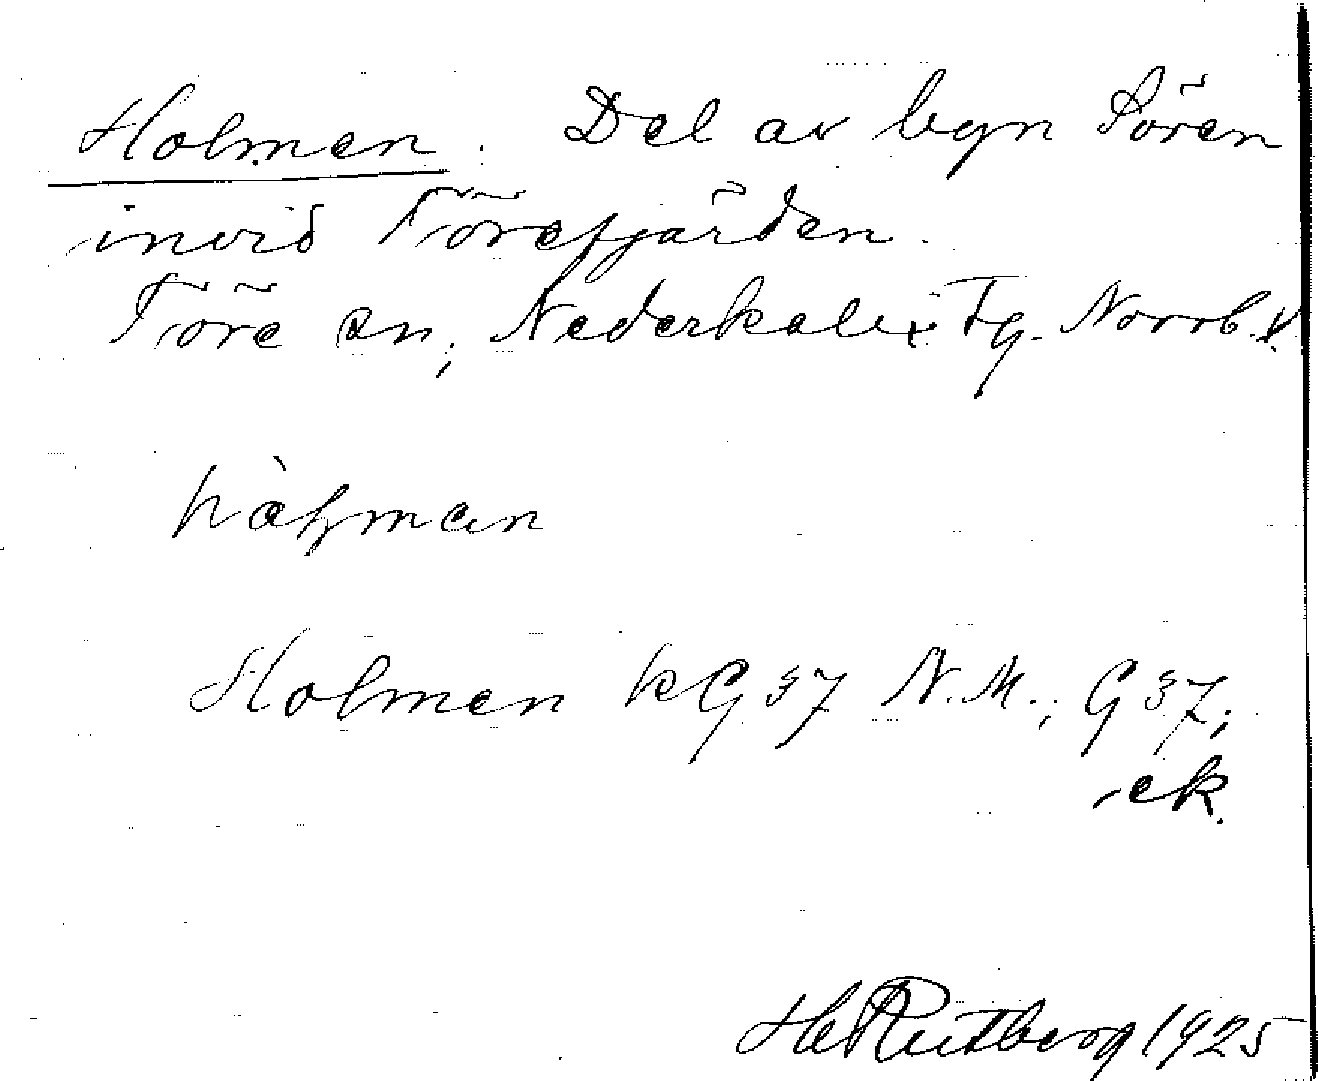 Holmen. Del av byn Sören
invid Törefjärden.
Töre sn, Nederkalix Tg. Norrb. l.
hàƚman
Holmen kG 37 N.M.; G 37;
ek.
H Rutberg 1925